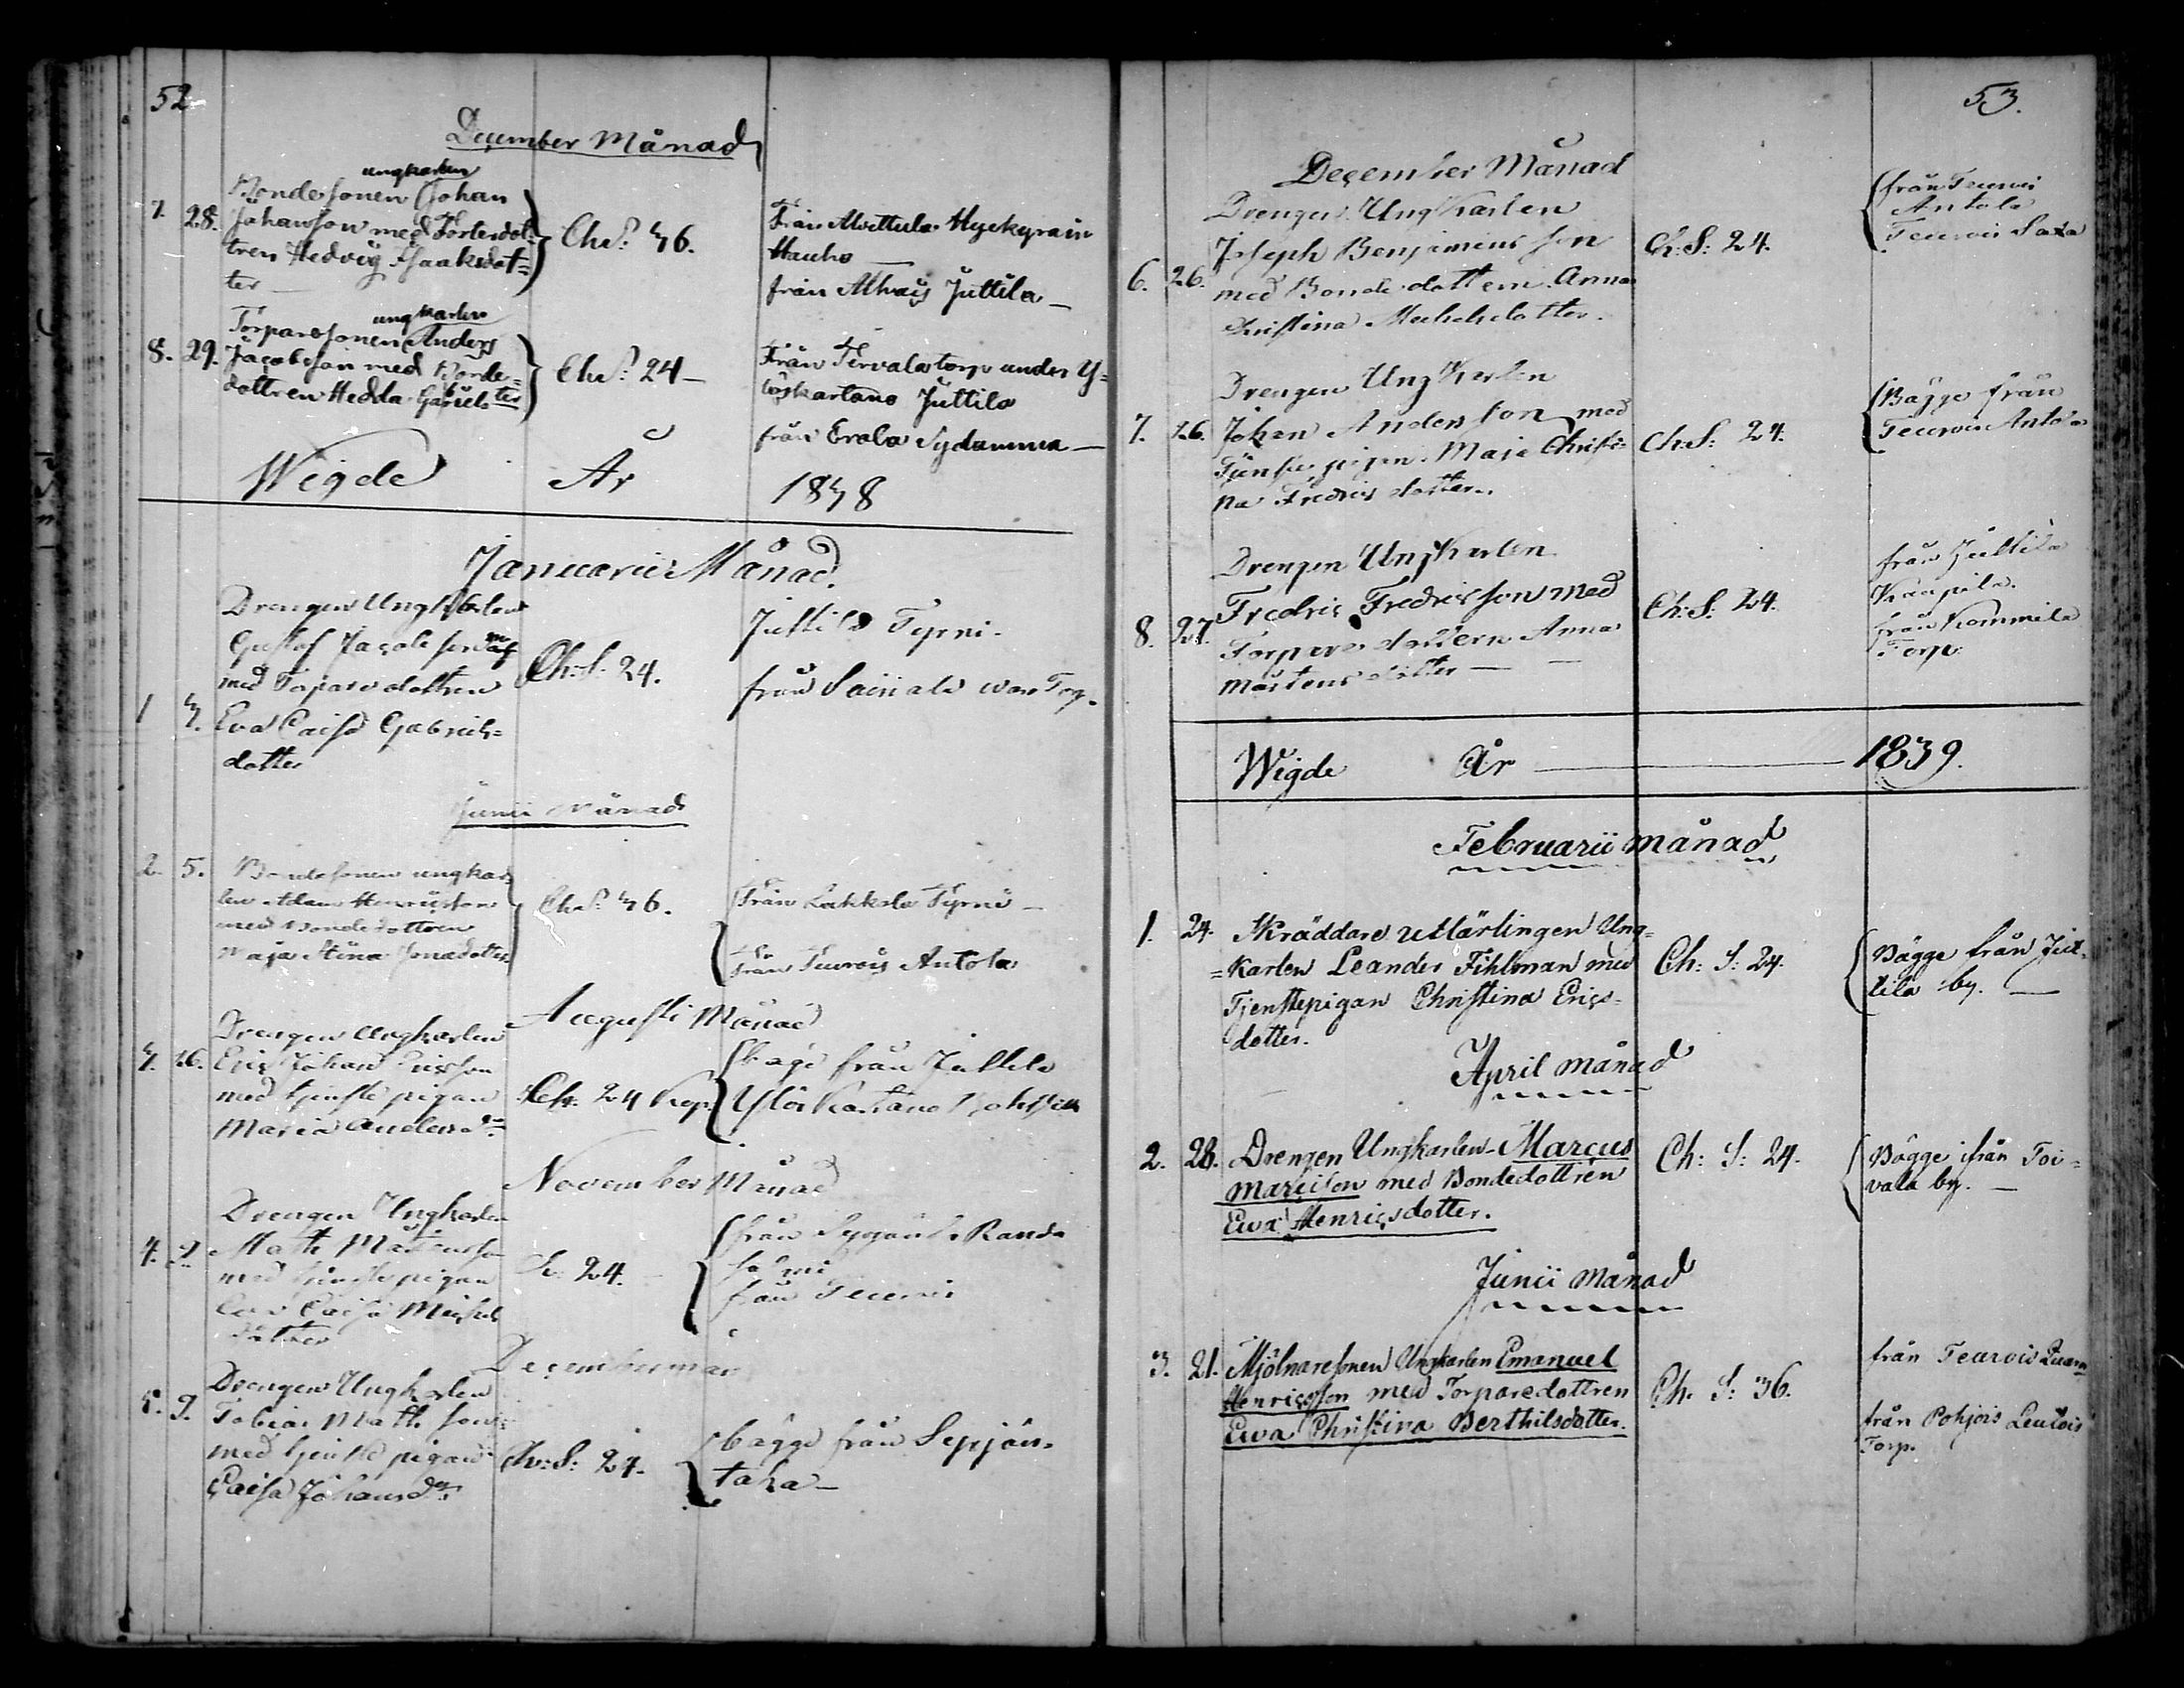 52
December Månad
ungkarlen
7. 28. Bondesonen Johan
Johansson med
tren Hedvig Isaaksdot=
ter —
Ch S: 36.
Från Hyckyrain
Hauho —
från Alhais Juttila —
ungkarlen
8. 29. Torparesonen Anders
Jacobsson med Bonde=
dottren Hedda Gabriels ter
Ch S: 24 —
Från Tervala torp under Y=
löiskartano Juttila
från Erala Sydanmaa —
Wigde År 1838
Januarii Månad.
Drengen Ungkarlen
Gustaf Jacobsson
med Torparedottren
1 3. Eva Caisa Gabriels=
dotter
Ch: S. 24.
Juttila Tyrni.
från Torp.
Junii Månad
2. 5. Bondesonen ungkar=
len Adam Henricsson
med Bondedottren
Maja Stina Jonædotter
Ch S: 36.
Från Lakkola Tyrni —
Från Teurois Antola
Augusti Månad
Drengen Ungkarlen
3. 26. Eric Johan Ericsson
med tjenste pigan
Maria Anders dr
Ch: 24 Kop.
bäge från Juttila
Ylöis Kartano
November Månad
Drengen Ungkarlen
4. 2. Math Mårtensson
med tjenste pigan
Caisa Michels
dotter
S: 24. —
från Randa
salmi
från Teurois
December mån
Drengen Ungkarlen
5. 9. Tobias Maths son
med tjenste pigan
Caisa Johans dr
Ch: S: 24.
bägge från Sepjän=
taka —
53.
December Månad
Drengen Ungkarlen
Joseph Benjamins son
6. 26. med Bonde dottern Anna
Christina Michelsdotter.
Ch: S: 24.
från Teurois
Antola
Teurois Saxa
Drengen Ungkarlen
7. 26. Johan Andersson med
Tjenste pigan Maja Christi=
na Fredrics dotter.
Ch: S: 24.
Bägge från
Teurois Antola
Drengen Ungkarlen
8. 27. Fredric Fredricsson med
Torpare dottern Anna
Mårtens dotter — —
Ch: S: 24.
från Juttila
Kaapila.
från Kommila
Torp.
Wigde År — 1839.
Februarii månad
1. 24. Skräddare utlärlingen Ung=
=karlen Leander Fihlman med
Tjenstepigan Christina Erics=
dotter.
Ch: S: 24.
Bägge från Jut=
tila by. —
April månad
2. 28. Drengen Ungkarlen Marcus
Marcison med Bondedottren
Ewa Henricsdotter.
Ch: S: 24.
Bägge ifrån Toi=
vala by. —
Junii månad
3. 21. Mjölnaresonen Ungkarlen Emanuel
Henricsson med Torparedottren
Ewa Christina Berthilsdotter.
Ch. S: 36.
från Teurois
från Pohjois Leutois
Torp.